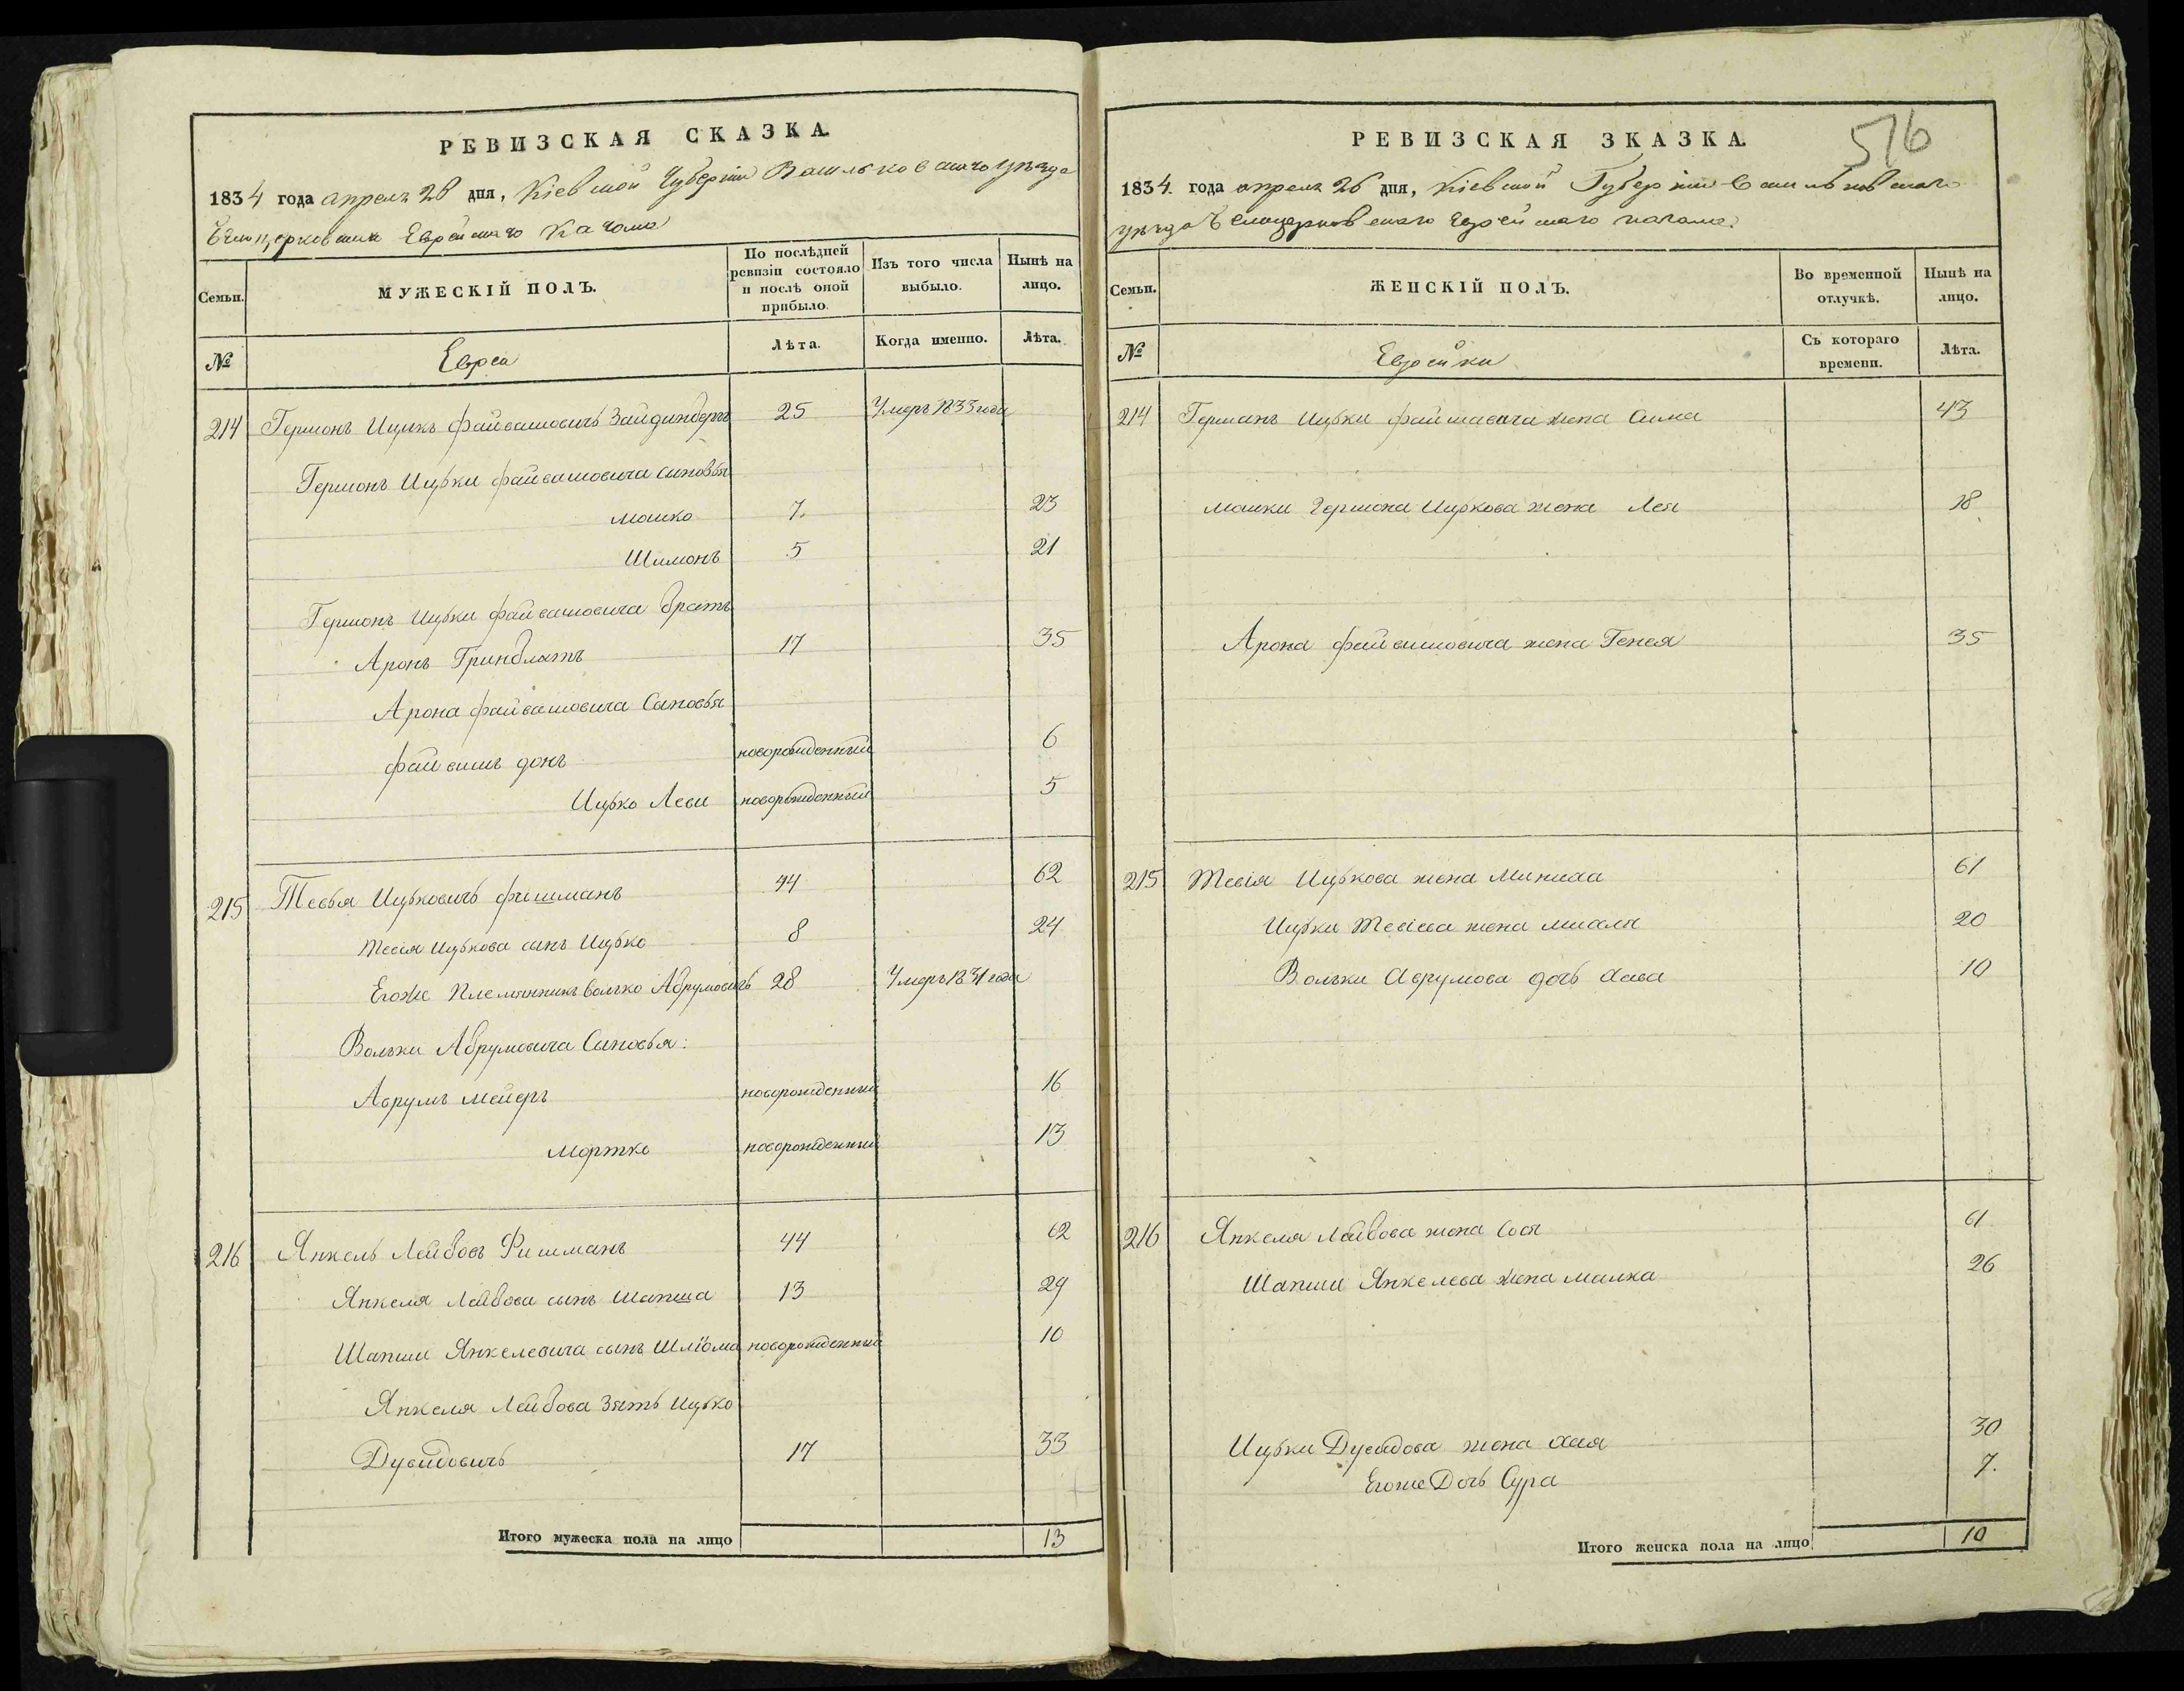 РЕВИЗСКАЯ СКАЗКА.
1834 года апреля 26 дня, Кіевской Губерніи Васильковскаго уезда
Белоцерковскаго Еврейскаго Кагала
Семьи.
МУЖЕСКІЙ ПОЛЪ.
По послѣдней ревизіи состояло и послѣ оной прибыло.
Изъ того числа выбыло.
Нынѣ на лицо.
№
Евреи
Лѣта.
Когда именно.
Лѣта.
214 Гершонъ Ицикъ файвишовичъ Зайдинбергъ 25 Умеръ 1833 года
Гершонъ Ицьки файвишовича сыновья
мошко 7. 23
Шимонъ 5 21
Гершонъ Ицьки файвишовича братъ
Аронъ Гринблатъ 17 35
Арона файвишовича Сыновья
файвишъ донъ новорожденный 6
Ицько Леви новорожденный 5
215 Тевья Ицьковичъ фишманъ 44 62
Тевія Ицькова сынъ Ицько 8 24
Егоже Племянникъ Волько Абрумовичъ 28 Умеръ 1831 года
Вольки Абрумовича Сыновья:
Аврумъ мейеръ новорожденный 16
мортко новорожденный 13
216 Янкель Лейбовъ Фишманъ 44 62
Янкеля Лейбова сынъ Шапша 13 29
Шапши Янкелевича сынъ Шлiома новорожденный 10
Янкеля Лейбова Зять Ицько
Дувидовичъ 17 33
Итого мужеска пола на лицо 13
РЕВИЗСКАЯ ЗКАЗКА.
516
1834. года апреля 26 дня, Кіевской Губерніи Васильковскаго
уезда Белоцерковскаго Еврейскаго кагала.
Семьи.
ЖЕНСКІЙ ПОЛЪ.
Во временной отлучкѣ.
Нынѣ на лицо.
№
Еврейки
Съ котораго времени.
Лѣта.
214 Гершонъ Ицьки файшавича жена Сима 43
мошки Гершона Ицкова жена Лея 18
Арона файвишовича жена Генея 35
215 Тевія Ицькова жена Миниха 61
Ицьки Тевіева жена миаля 20
Вольки Аврумова дочь хава 10
216 Янкеля Лейбова жена Сося 61
Шапши Янкелева жена малка 26
Ицьки Дувидова жена хая 30
Егоже Дочь Сура 7.
Итого женска пола на лицо 10